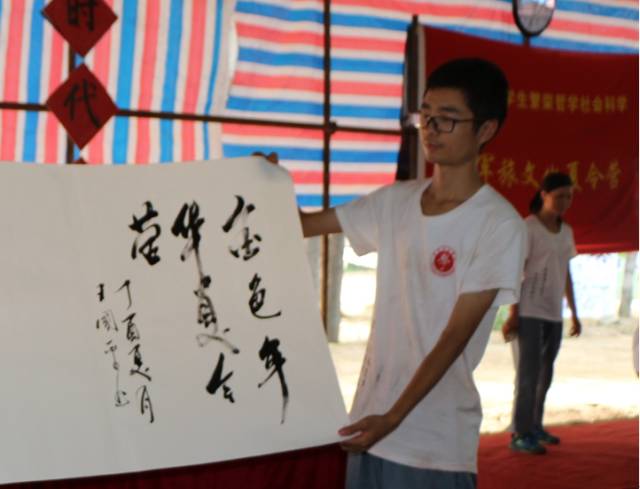 时代
学生繁荣哲学社会科学
军旅文化夏令营
金色年
华夏令
营
丁酉夏月